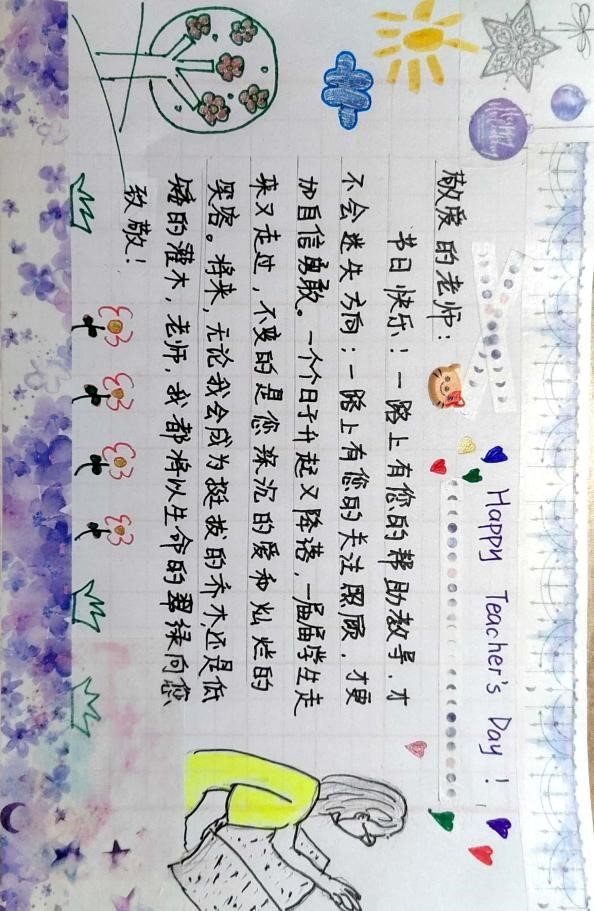 Happy Teacher's Day!
敬爱的老师:
节日快乐!一路上有您的帮助教导,才
不会迷失方向;一路上有您的关注照顾,才更
加自信勇敢。一个个日子升起又降落,一届届学生走
来又走过,不变的是您深沉的爱和灿烂的
笑容。将来,无论我会成为挺拔的乔木,还是低
矮的灌木,老师,我都将以生命的翠绿向您
致敬!